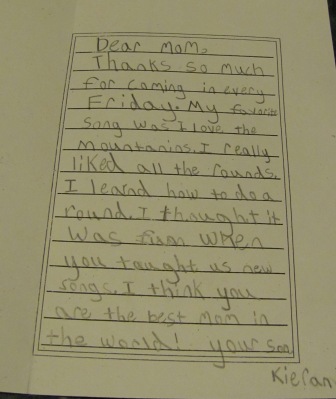 Dear Mom,
Thanks so much
for coming in every
Friday. My favorite
song was I love the
mountanins. I really
liked all the rounds.
I learnd how to do a
round. I thought it
was fun when
you taught us new
songs. I think you
are the best mom in
the world! your son
Kieran